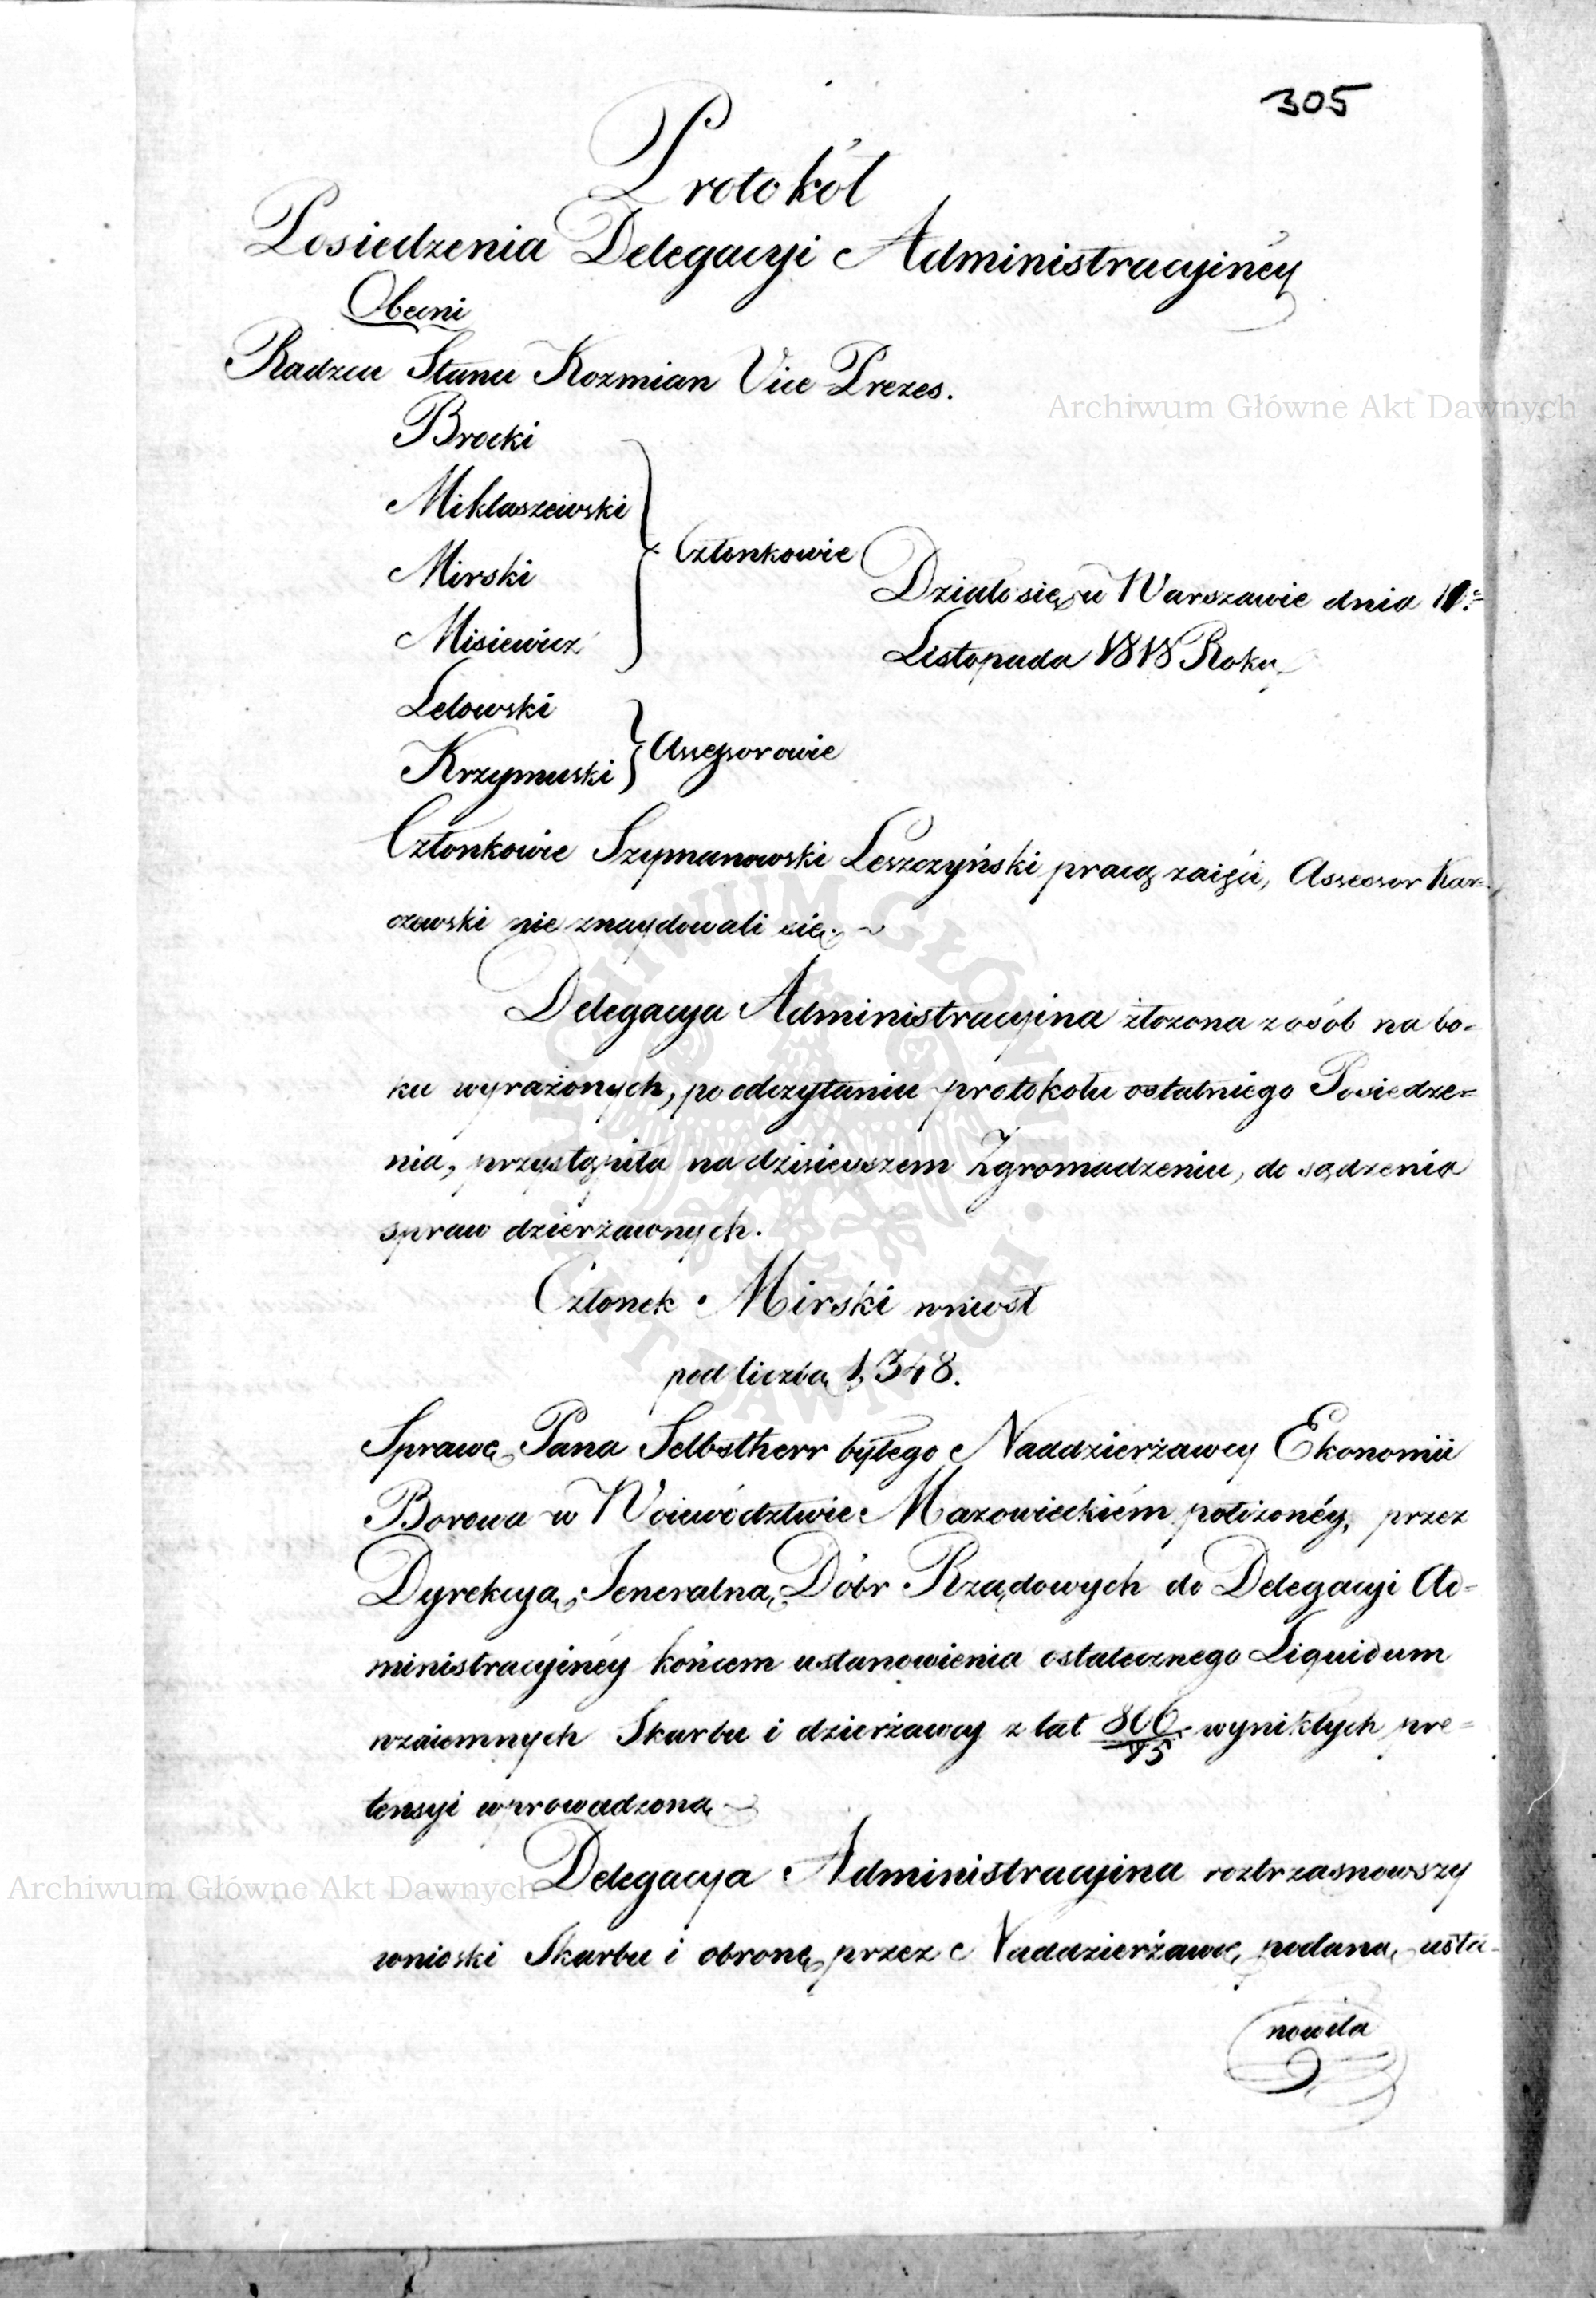 305
Protokół
Posiedzenia Delegacyi Administracyinéy
Obecni
Radzca Stanu Kozmian Vice Prezes.
Brocki
Miklaszewski
Mirski
Misiewicz
Członkowie
Działo się w Warszawie dnia
Listopada 1818 Roku
Lelowski
Krzymuski
Assessorowie
Członkowie Szymanowski Leszczyński pracą zaięci, Assessor Kar=
czewski nie znaydowali się.
Delegacya Administracyina złożona z osób na bo=
ku wyrażonych, po odczytaniu protokołu ostatniego Posiedze=
nia, przystąpiła na dzisieyszem Zgromadzeniu, do sądzenia
spraw dzierżawnych.
Członek Mirski wniosł
pod liczbą 1,348.
Sprawę Pana Selbstherr byłego Naddzierżawcy Ekonomii
Borowa w Woiewództwie Mazowieckiém położonéy, przez
Dyrekcyą Jeneralną Dóbr Rządowych do Delegacyi Ad=
ministracyinéy końcem ustanowienia ostatecznego Liquidum
wzaiemnych Skarbu i dzierżawcy z lat 806/15 wynikłych pre=
tensyi wprowadzoną
Delegacya Administracyina roztrzasnowszy
wnioski Skarbu i obronę przez Naddzierżawcę podaną usta=
nowiła
Archiwum Główne Akt Dawnych
Archiwum Główne Akt Dawnych
ARCHIWUM GŁÓWNE AKT DAWNYCH